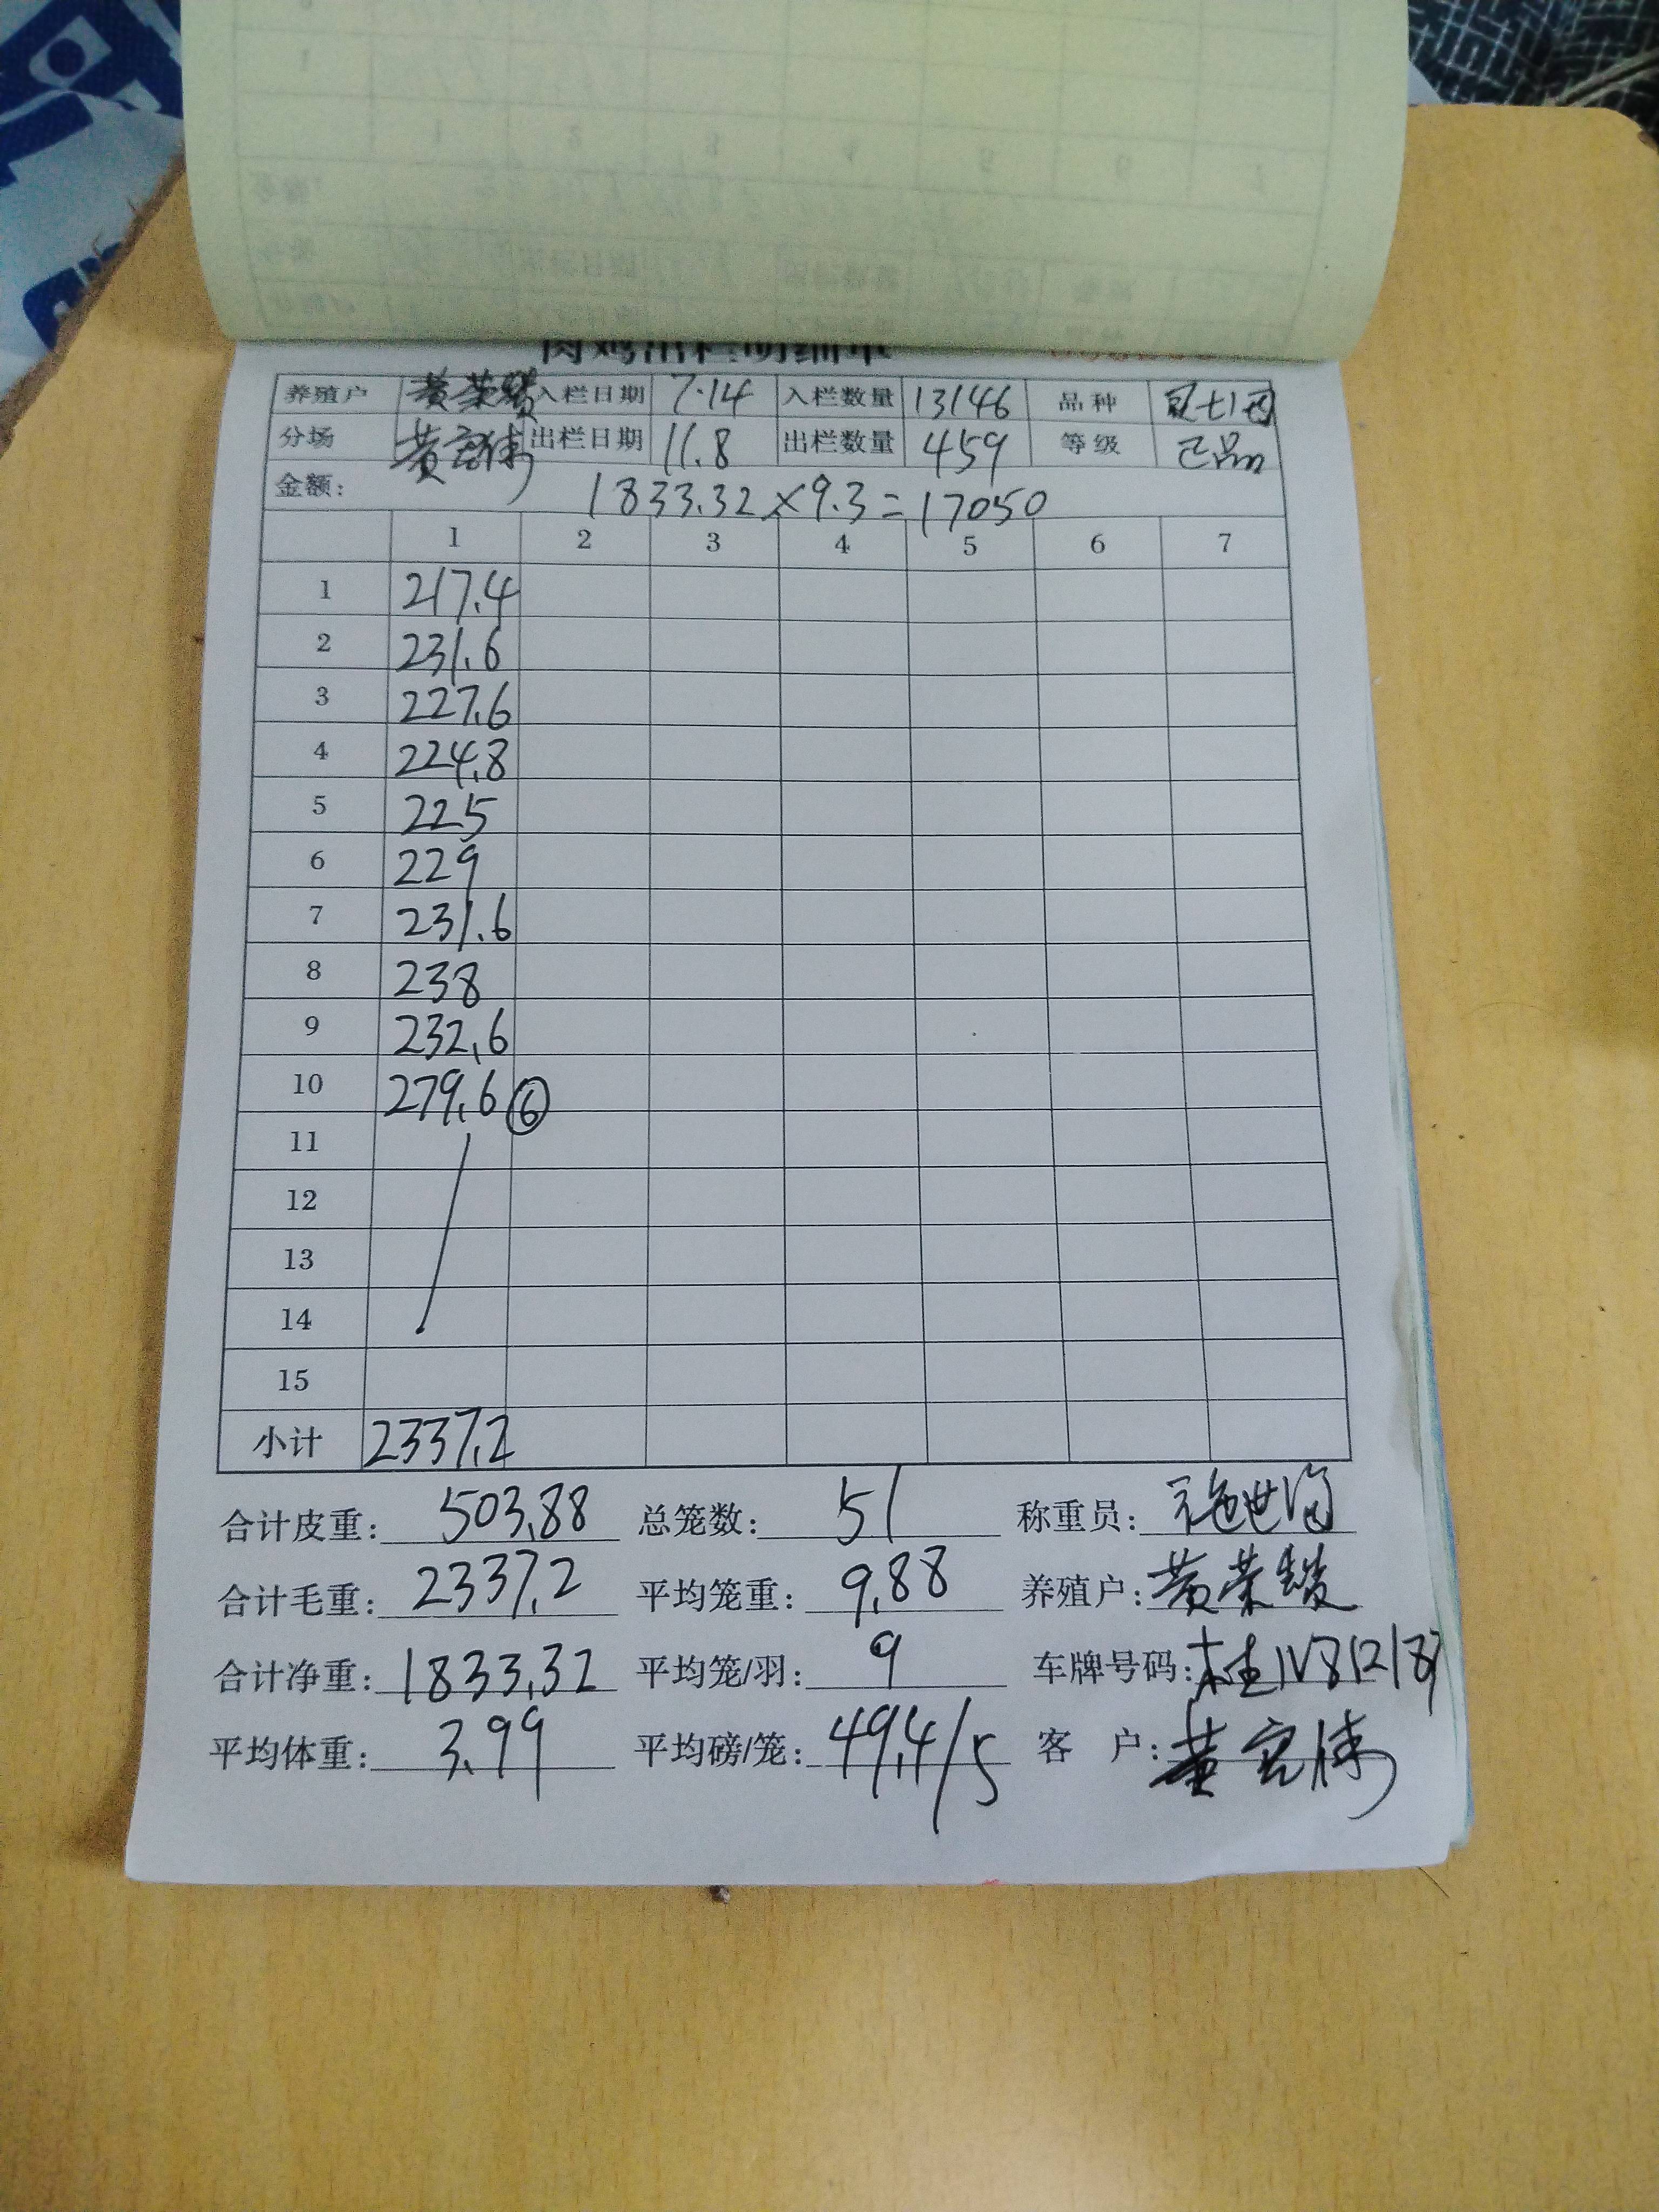 肉鸡出栏明细单
养殖户 黄荣 入栏日期 7.14 入栏数量 13146 品种
分场 黄 出栏日期 11.8 出栏数量 459 等级 正品
金额: 1833.32×9.3=17050
1 2 3 4 5 6 7
1 217.4
2 231.6
3 227.6
4 224.8
5 225
6 229
7 231.6
8 238
9 232.6
10 279.6 ⑥
11
12
13
14
15
小计 2337.2
合计皮重: 503.88 总笼数: 51 称重员:
合计毛重: 2337.2 平均笼重: 9.88 养殖户: 黄荣
合计净重: 1833.32 平均笼/羽: 9 车牌号码:
平均体重: 3.99 平均磅/笼: 49.4/5 客 户: 黄